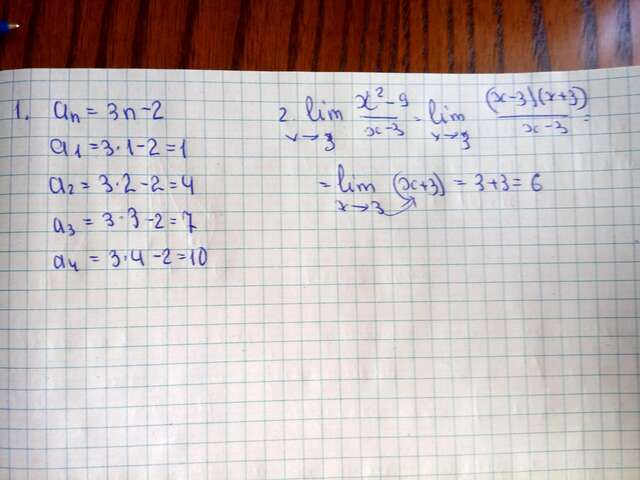 1. aₙ = 3n-2
a₁ = 3·1-2=1
a₂ = 3·2-2=4
a₃ = 3·3-2=7
a₄ = 3·4-2=10
2. lim x→3 (x²-9)/(x-3) = lim x→3 ((x-3)(x+3))/(x-3) =
= lim x→3 (x+3) = 3+3=6